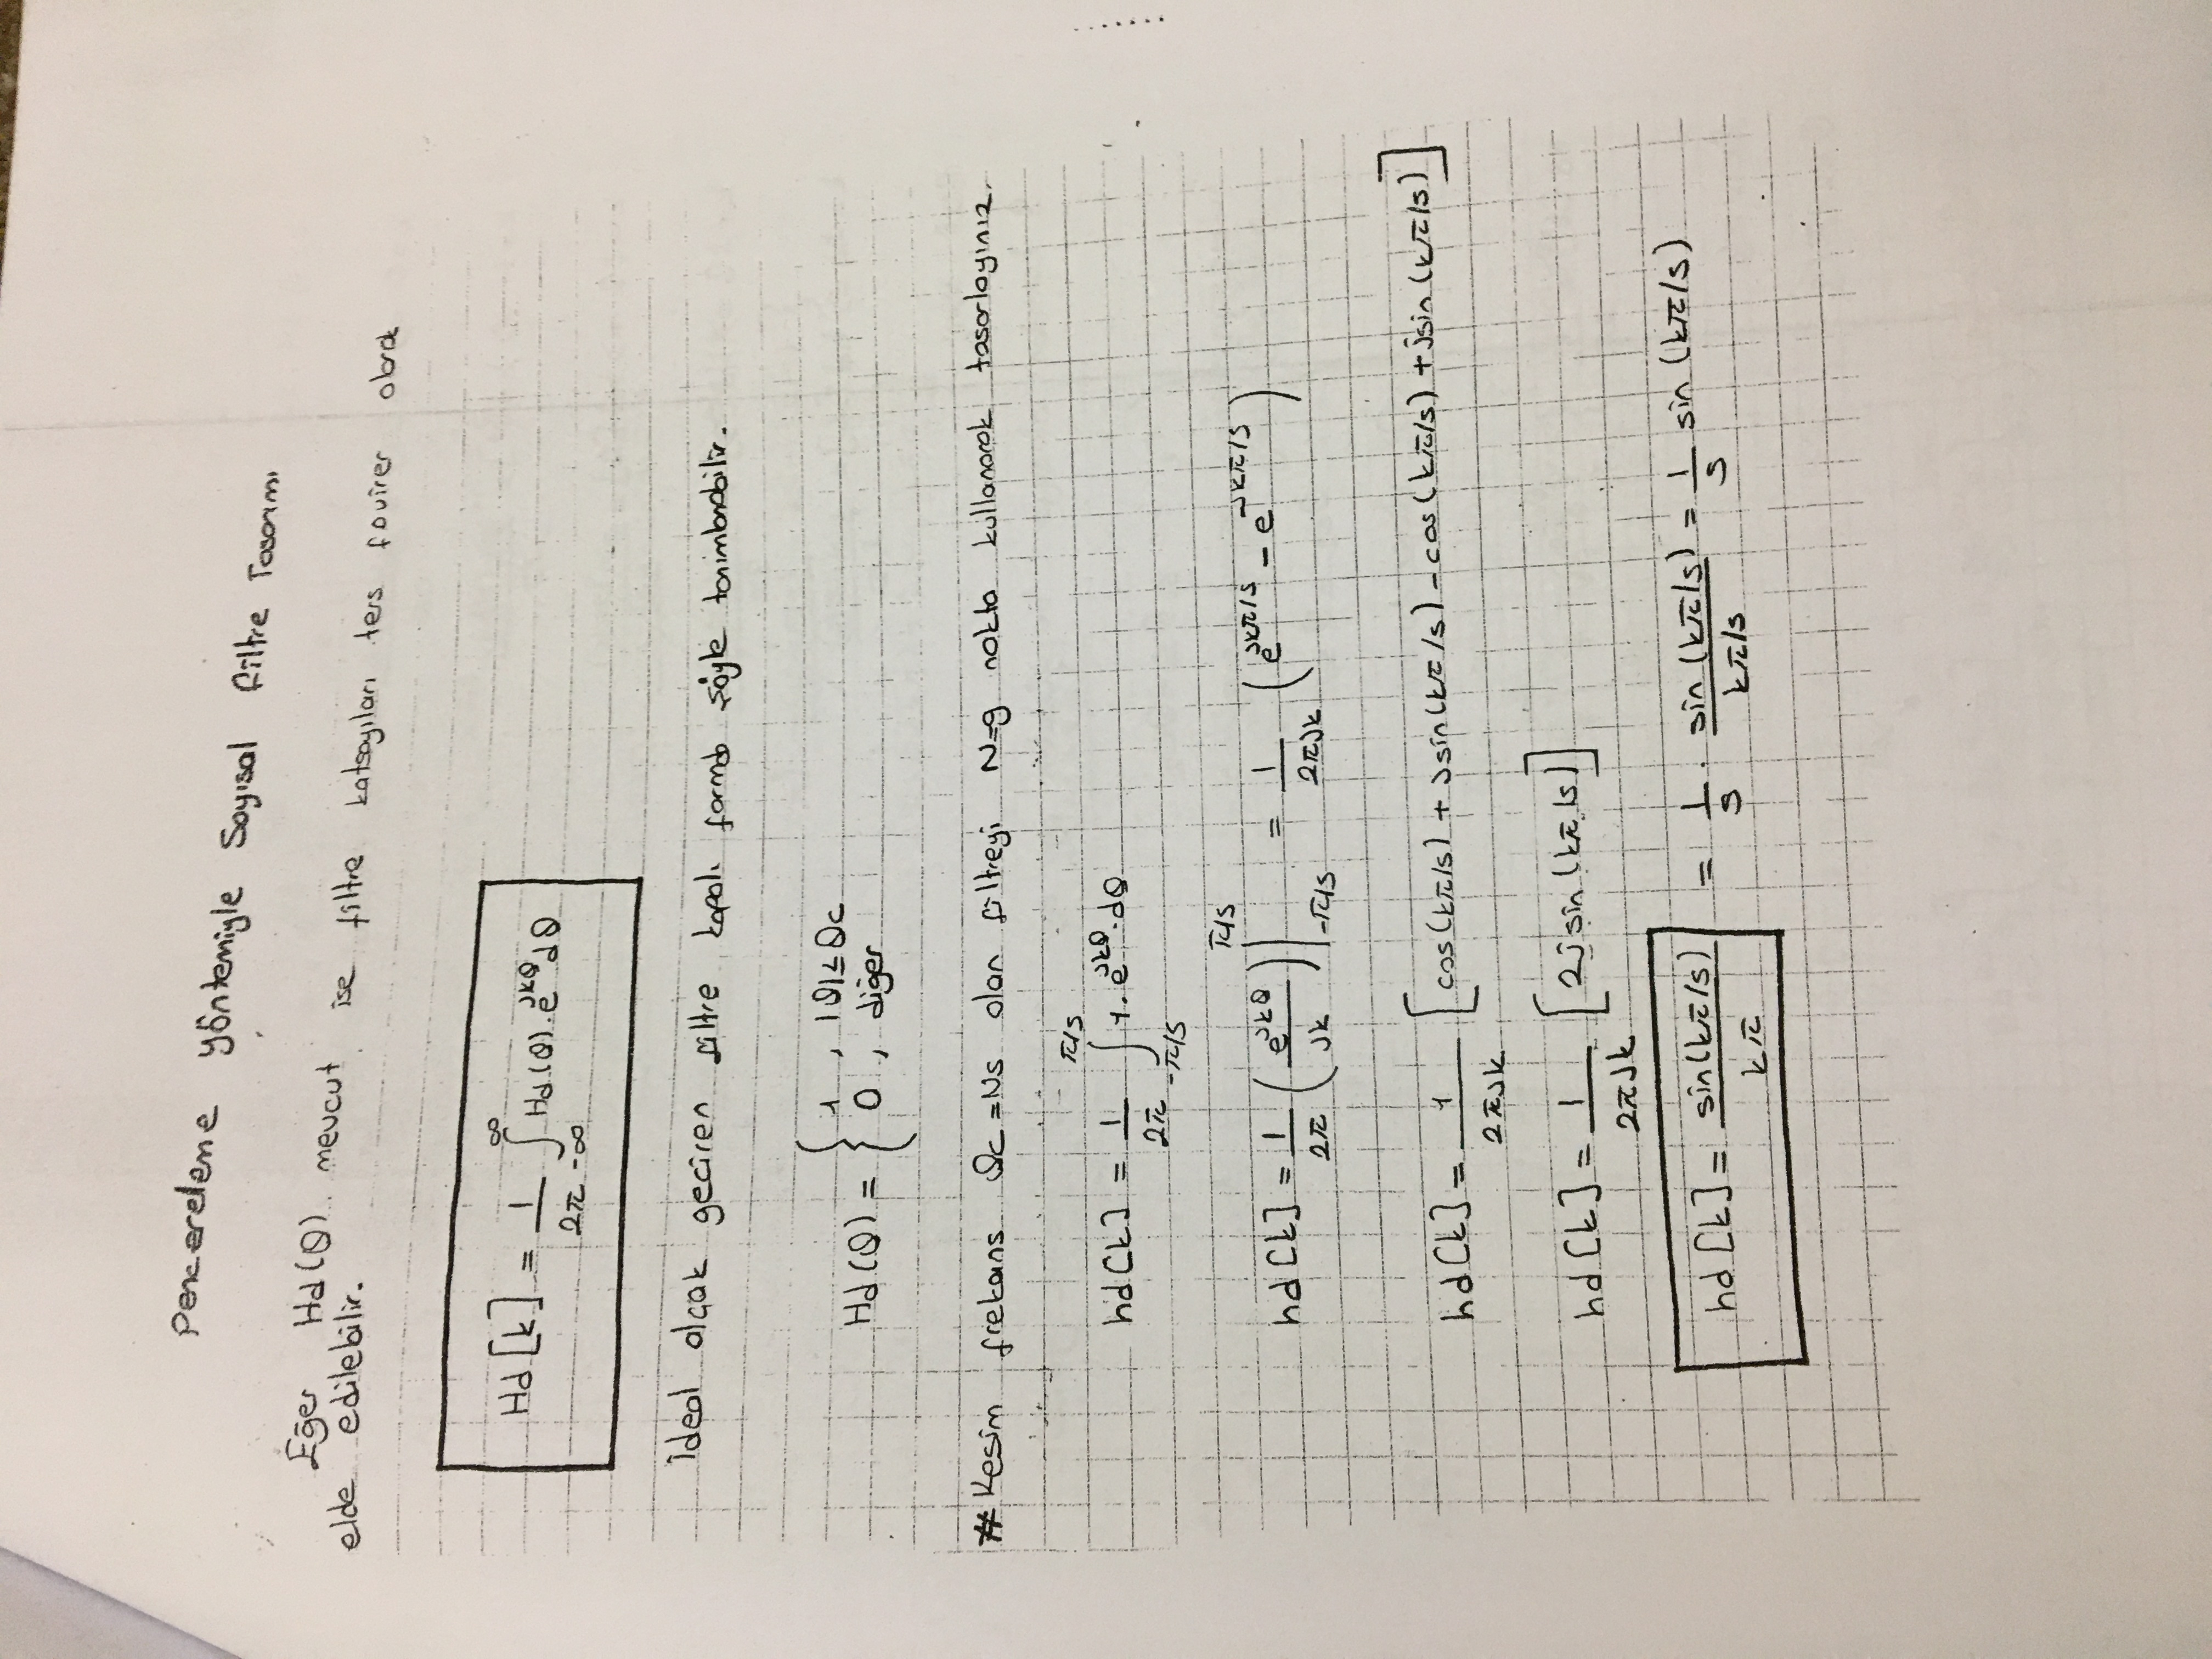 Pencereleme Yöntemiyle Sayısal Filtre Tasarımı
Eğer Hd(θ) mevcut ise filtre katsayıları ters fouirer olarak
elde edilebilir.
Hd[k] = 1/2π ∫_{-∞}^{∞} Hd(θ).e^{jkθ}dθ
İdeal alçak geciren filtre kapalı formda şöyle tanımlanabilir.
Hd(θ) = { 1 , |θ|≤θc
0 , diğer
# Kesim frekans θc=Ns olan filtreyi N=9 nokta kullanarak tasarlayınız.
hd[k] = 1/2π ∫_{-π/s}^{π/s} 1.e^{jkθ}.dθ
hd[k] = 1/2π (e^{jkθ}/jk)|_{-π/s}^{π/s} = 1/2πjk (e^{jkπ/s} - e^{-jkπ/s})
hd[k] = 1/2πjk [cos(kπ/s) + jsin(kπ/s) - cos(kπ/s) + jsin(kπ/s)]
hd[k] = 1/2πjk [2jsin(kπ/s)]
hd[k] = sin(kπ/s)/kπ = 1/s . sin(kπ/s)/kπ/s = 1/s sin(kπ/s)